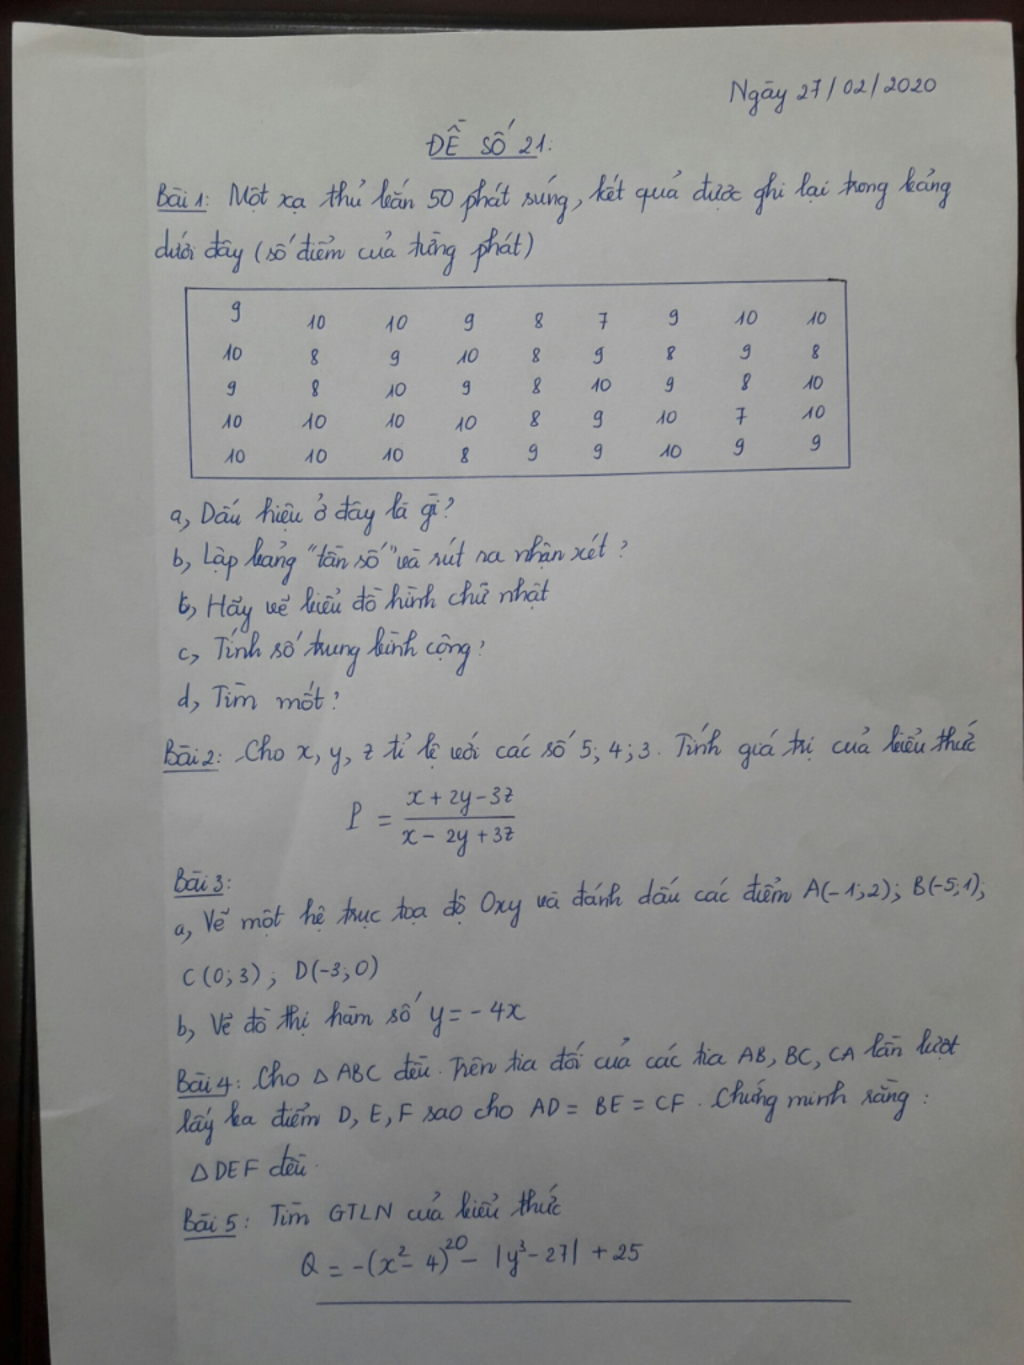 Ngày 27/02/2020
ĐỀ SỐ 21:
Bài 1: Một xạ thủ bắn 50 phát súng, kết quả được ghi lại trong bảng
dưới đây (số điểm của từng phát)
9 10 10 9 8 7 9 10 10
10 8 9 10 8 9 8 9 8
9 8 10 9 8 10 9 8 10
10 10 10 10 8 9 10 7 10
10 10 10 8 9 9 10 9 9
a, Dấu hiệu ở đây là gì?
b, Lập bảng "tần số" và rút ra nhận xét?
b, Hãy vẽ biểu đồ hình chữ nhật
c, Tính số trung bình cộng?
d, Tìm mốt?
Bài 2: Cho x, y, z tỉ lệ với các số 5; 4; 3. Tính giá trị của biểu thức
P = \frac{x + 2y - 3z}{x - 2y + 3z}
Bài 3:
a, Vẽ một hệ trục tọa độ Oxy và đánh dấu các điểm A(-1;2); B(-5;1);
C(0;3); D(-3;0)
b, Vẽ đồ thị hàm số y = -4x
Bài 4: Cho △ABC đều. Trên tia đối của các tia AB, BC, CA lần lượt
lấy ba điểm D, E, F sao cho AD = BE = CF. Chứng minh rằng:
△DEF đều.
Bài 5: Tìm GTLN của biểu thức
Q = -(x² - 4)²⁰ - |y³ - 27| + 25